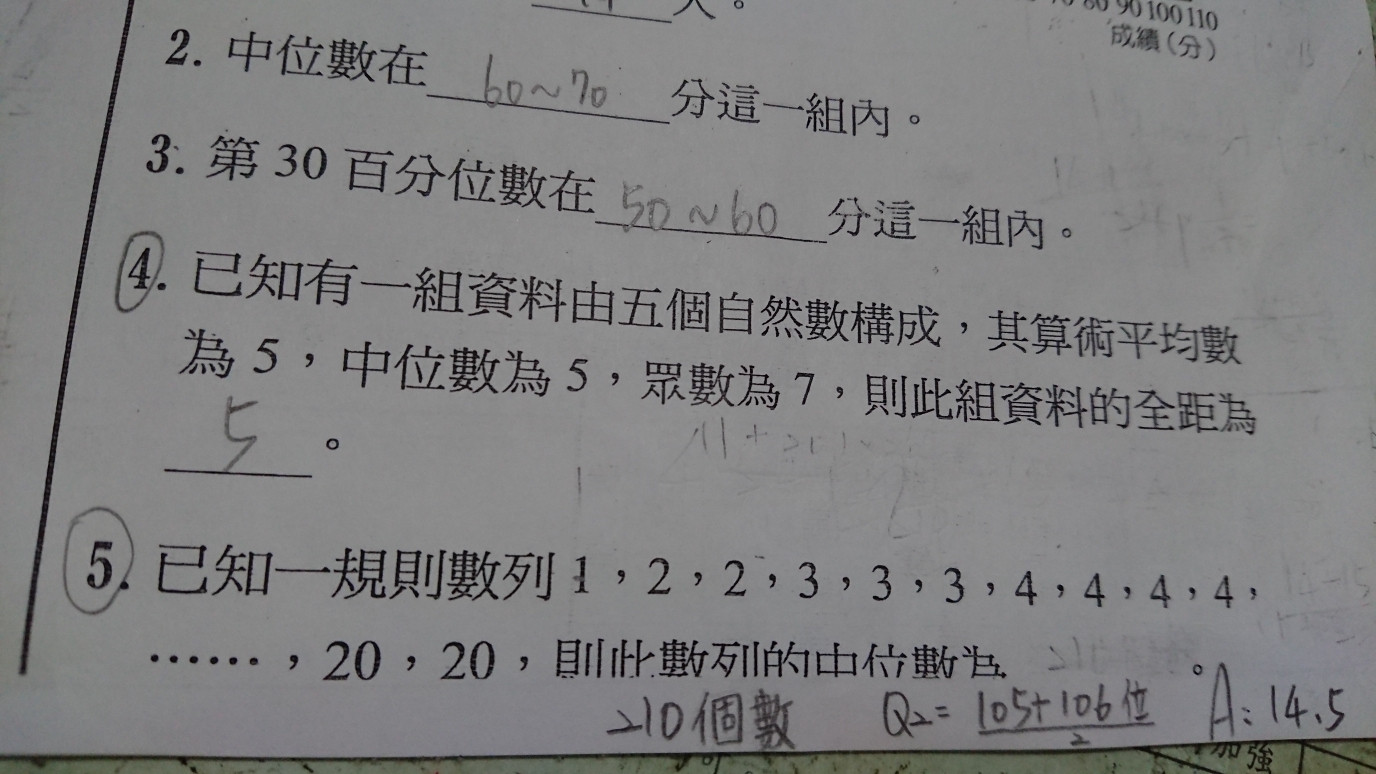 90 100 110
成績(分)
2. 中位數在 60~70 分這一組內。
3. 第 30 百分位數在 50~60 分這一組內。
4. 已知有一組資料由五個自然數構成,其算術平均數
為 5,中位數為 5,眾數為 7,則此組資料的全距為
5 。
5. 已知一規則數列 1,2,2,3,3,3,4,4,4,4,
……,20,20,則此數列的中位數為 。
210個數 Q2= 105+106位/2 A: 14.5
加強